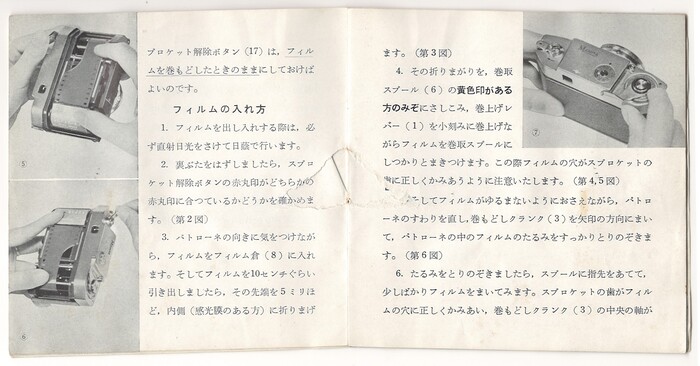 プロケット解除ボタン（17）は，フィル
ムを巻もどしたときのままにしておけば
よいのです。
フィルムの入れ方
1. フィルムを出し入れする際は，必
ず直射日光をさけて日蔭で行います。
2. 裏ぶたをはずしましたら，スプロ
ケット解除ボタンの赤丸印がどちらかの
赤丸印に合つているかどうかを確かめま
す。（第2図）
3. パトローネの向きに気をつけなが
ら，フィルムをフィルム倉（8）に入れ
ます。そしてフィルムを10センチぐらい
引き出しましたら，その先端を5ミリほ
ど，内側（感光膜のある方）に折りまげ
⑤
6
ます。（第3図）
4. その折りまがりを，巻取
スプール（6）の黄色印がある
方のみぞにさしこみ，巻上げレ
バー（1）を小刻みに巻上げな
がらフィルムを巻取スプールに
しつかりとまきつけます。この際フィルムの穴がスプロケットの
歯に正しくかみあうように注意いたします。（第4,5図）
そしてフィルムがゆるまないようにおさえながら，パトロ
ーネのすわりを直し，巻もどしクランク（3）を矢印の方向にまい
て，パトローネの中のフィルムのたるみをすっかりとりのぞきま
す。（第6図）
6. たるみをとりのぞきましたら，スプールに指先をあてて，
少しばかりフィルムをまいてみます。スプロケットの歯がフィル
ムの穴に正しくかみあい，巻もどしクランク（3）の中央の軸が
⑦